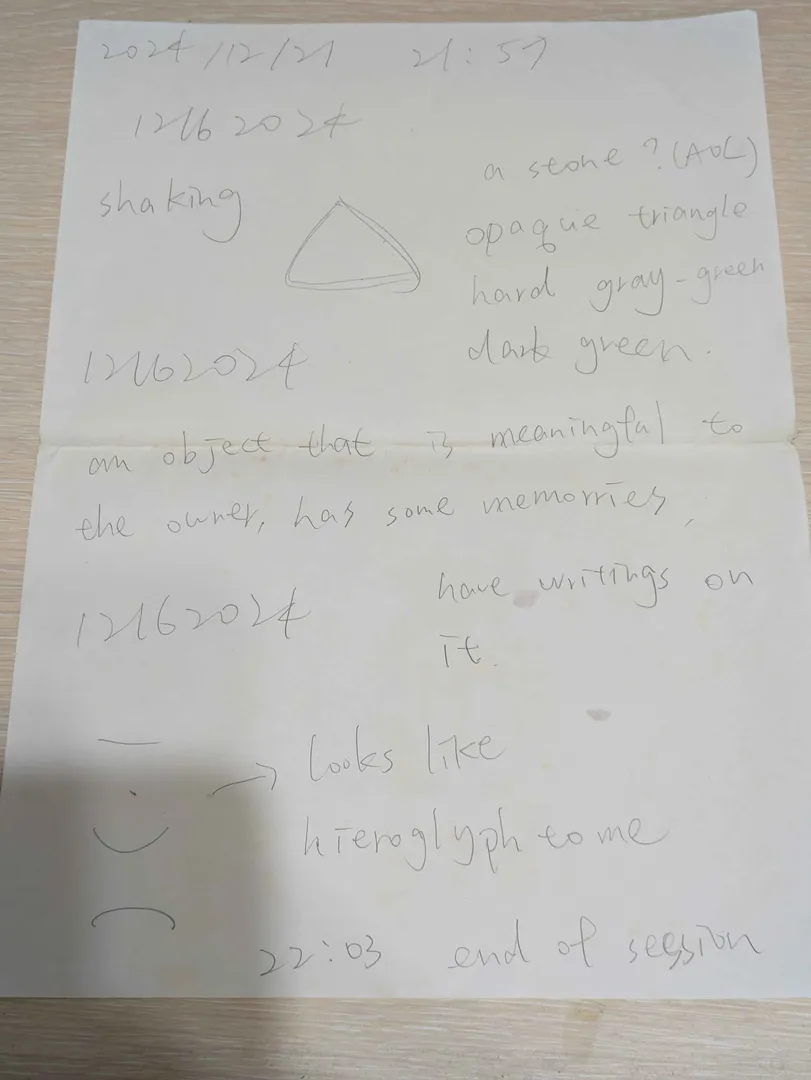 2024/12/21 21:57
12162024
a stone? (AOL)
shaking
opaque triangle
hard gray-green
dark green.
12162024
an object that is meaningful to
the owner, has some memorries,
have writings on
it.
12162024
looks like
hieroglyph to me
22:03 end of session